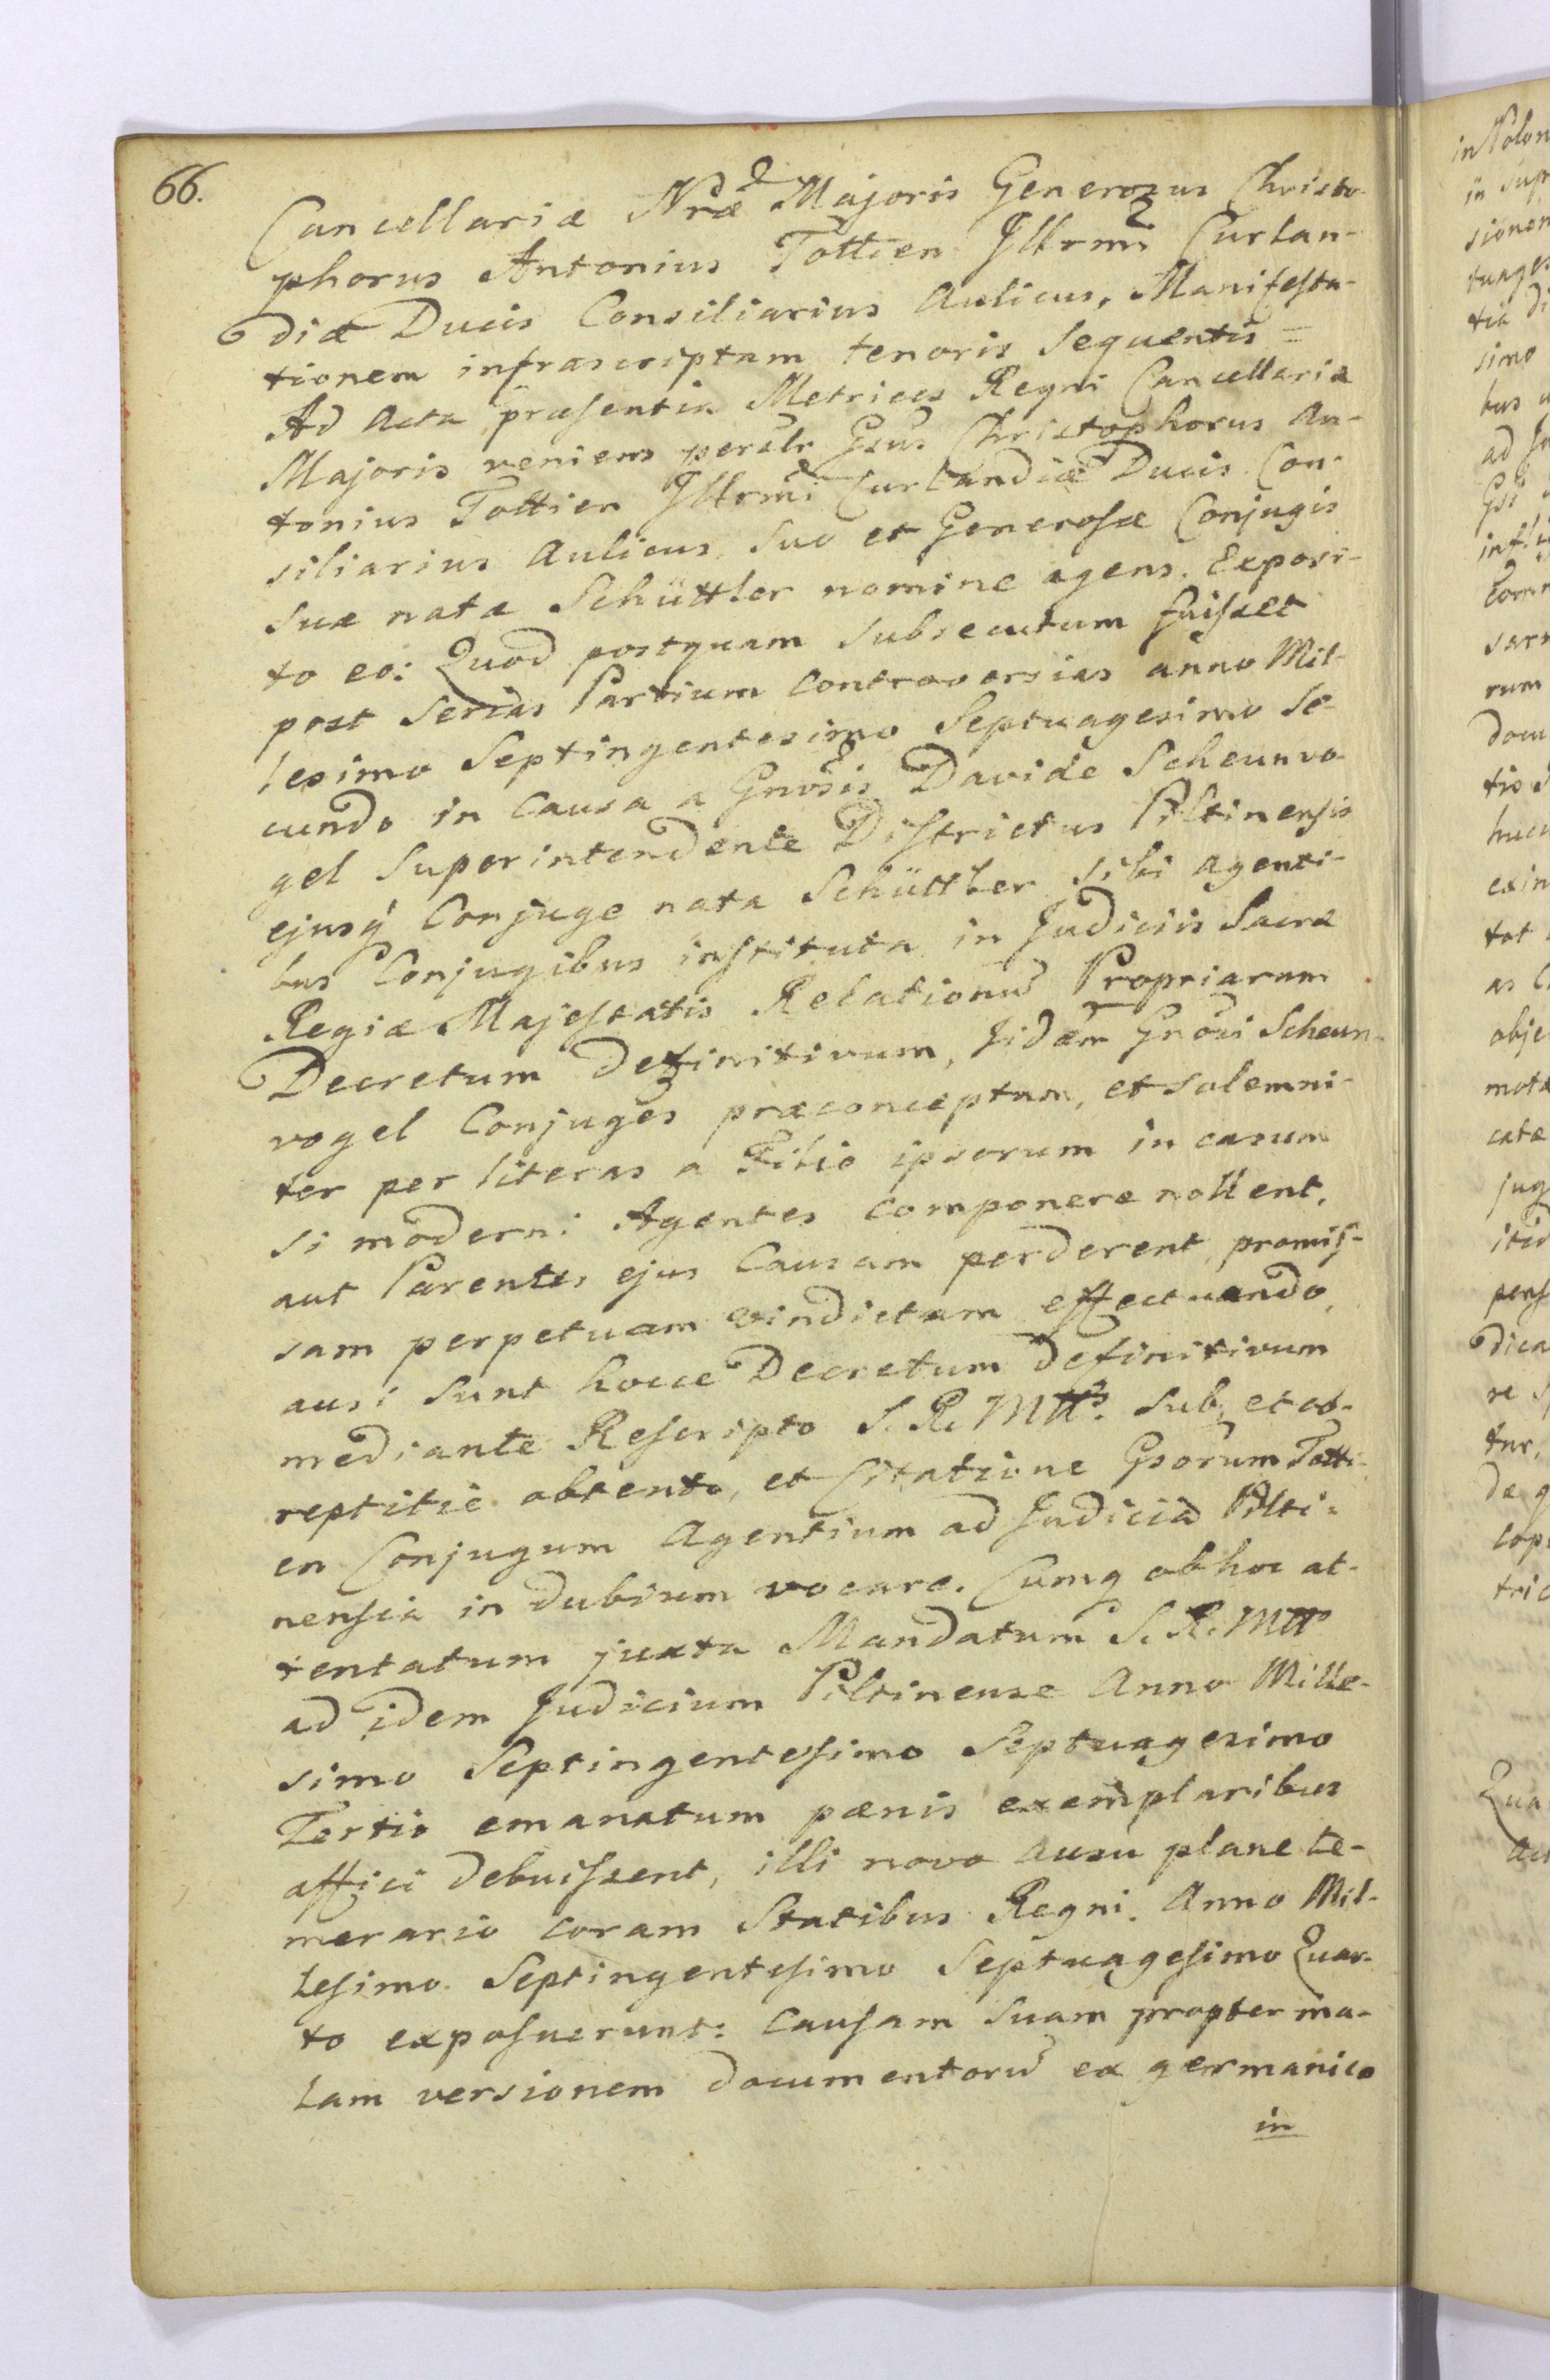 66.
Cancellariæ Nræ Majoris Generosus Christo-
phorus Antonius Tottien Illrmi Curlan-
diæ Ducis Consiliarius Aulicus, Manifesta-
tionem infrascriptam tenoris sequentis =
Ad Acta præsentia Metrices Regni Cancellariæ
Majoris veniens perslr Gsus Christophorus An-
tonius Tottien Illrmi Curlandiæ Ducis Con-
siliarius Aulicus suo et Generosæ Conjugis
suæ natæ Schüttler nomine agens. Exposi-
to eo: Quod postquam subsecutum fuisset
post serias Partium Controversias anno Mil-
lesimo Septingentesimo Septuagesimo Se-
cundo in Causa a Gnosis Davide Scheunvo-
gel Superintendente Districtus Piltinensis
ejusq Conjuge nata Schüttler sibi agenti-
bus Conjugibus instituta in Judiciis Sacræ
Regiæ Majestatis Relationu Propriarum
Decretum definitivum, Iidem Gnosi Scheun-
vogel Conjuges præconceptam, et solemni-
ter per literas a Filio ipsorum in casum
si moderni Agentes componere nollent,
aut Parentes ejus Causam perderent, promis-
sam perpetuam vindictam effectuando,
ausi sunt hocce Decretum Definitivum
mediante Rescripto S. R. Mttis. sub et ob-
reptitie obtento, et Citatione Gsorum Totti-
en Conjugum Agentium ad Judicia Pilti-
nensia in dubium vocare. Cumq ob hoc at-
tentatum juxta Mandatum S. R. Mttis
ad idem Judicium Piltinense Anno Mille-
simo Septingentesimo Septuagesimo
Tertio emanatum pænis exemplaribus
affici debuissent, illi novo ausu plane te-
merario coram Statibus Regni. Anno Mil-
lesimo. Septingentesimo Septuagesimo Quar-
to exposuerunt: Causam suam propter ma-
lam versionem documentoru ex germanico
in